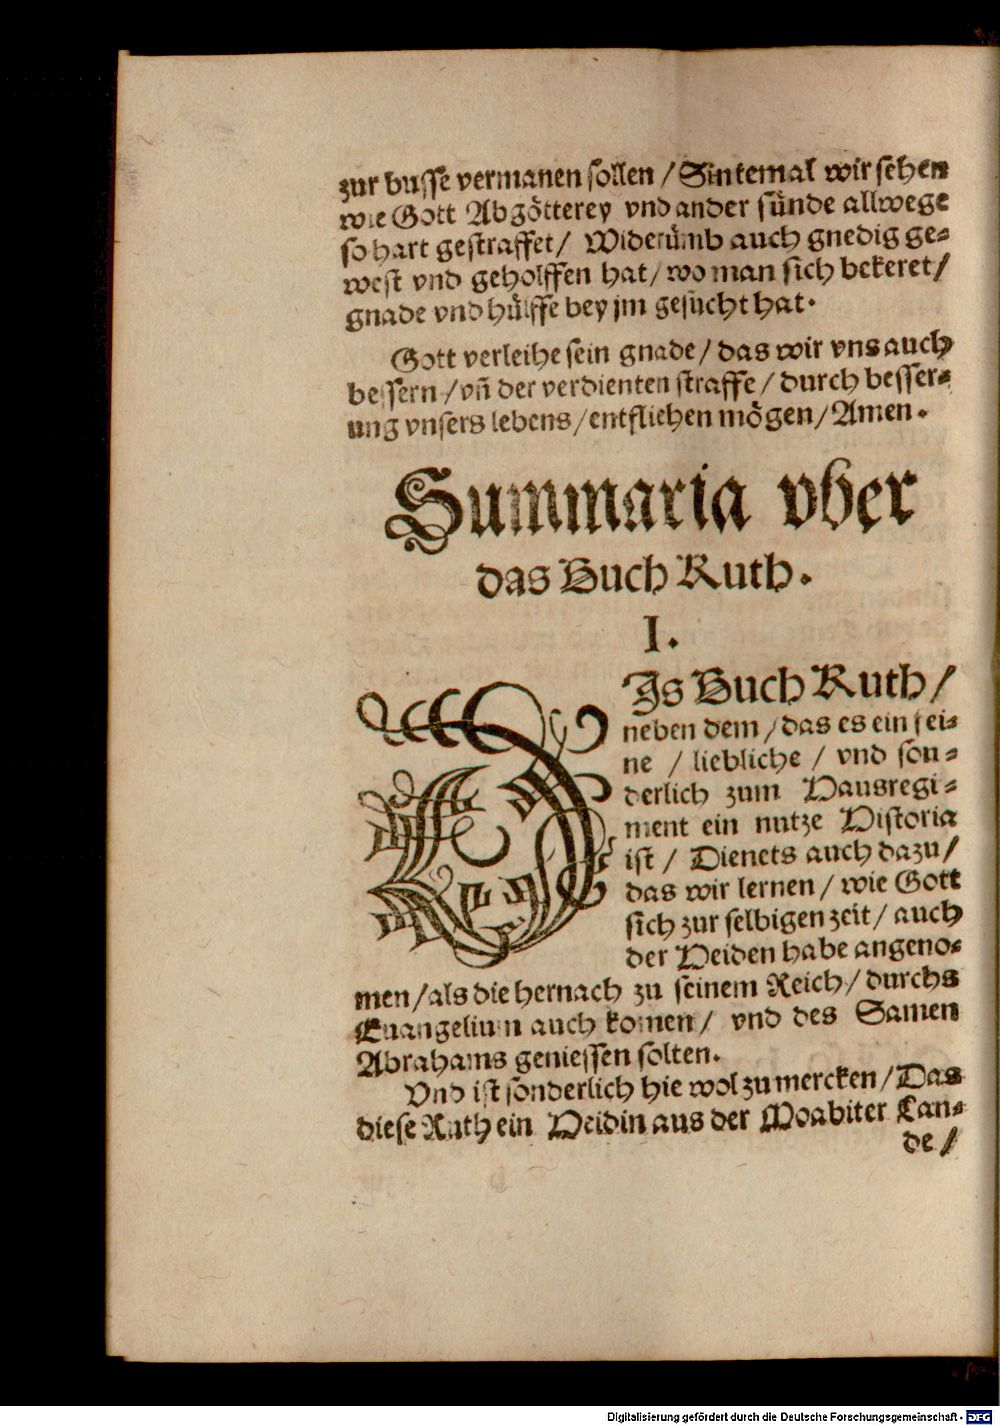 zur busse vermanen sollen / Sintemal wir sehen
wie Gott Abgötterey vnd ander sünde allwege
so hart gestraffet / Widerümb auch gnedig ge-
west vnd geholffen hat / wo man sich bekeret /
gnade vnd hülffe bey jm gesücht hat.
Gott verleihe sein gnade / das wir vns auch
bessern / vñ der verdienten straffe / durch besser-
ung vnsers lebens / entfliehen mögen / Amen.
Summaria vber
das Buch Ruth.
I.
DJs Buch Ruth /
neben dem / das es ein fei-
ne / liebliche / vnd son-
derlich zum Hausregi-
ment ein nutze Historia
ist / Dienets auch dazu /
das wir lernen / wie Gott
sich zur selbigen zeit / auch
der Heiden habe angeno-
men / als die hernach zu seinem Reich / durchs
Euangelium auch komen / vnd des Samen
Abrahams geniessen solten.
Vnd ist sonderlich hie wol zu mercken / Das
diese Ruth ein Heidin aus der Moabiter Lan-
de /
Digitalisierung gefördert durch die Deutsche Forschungsgemeinschaft - DFG